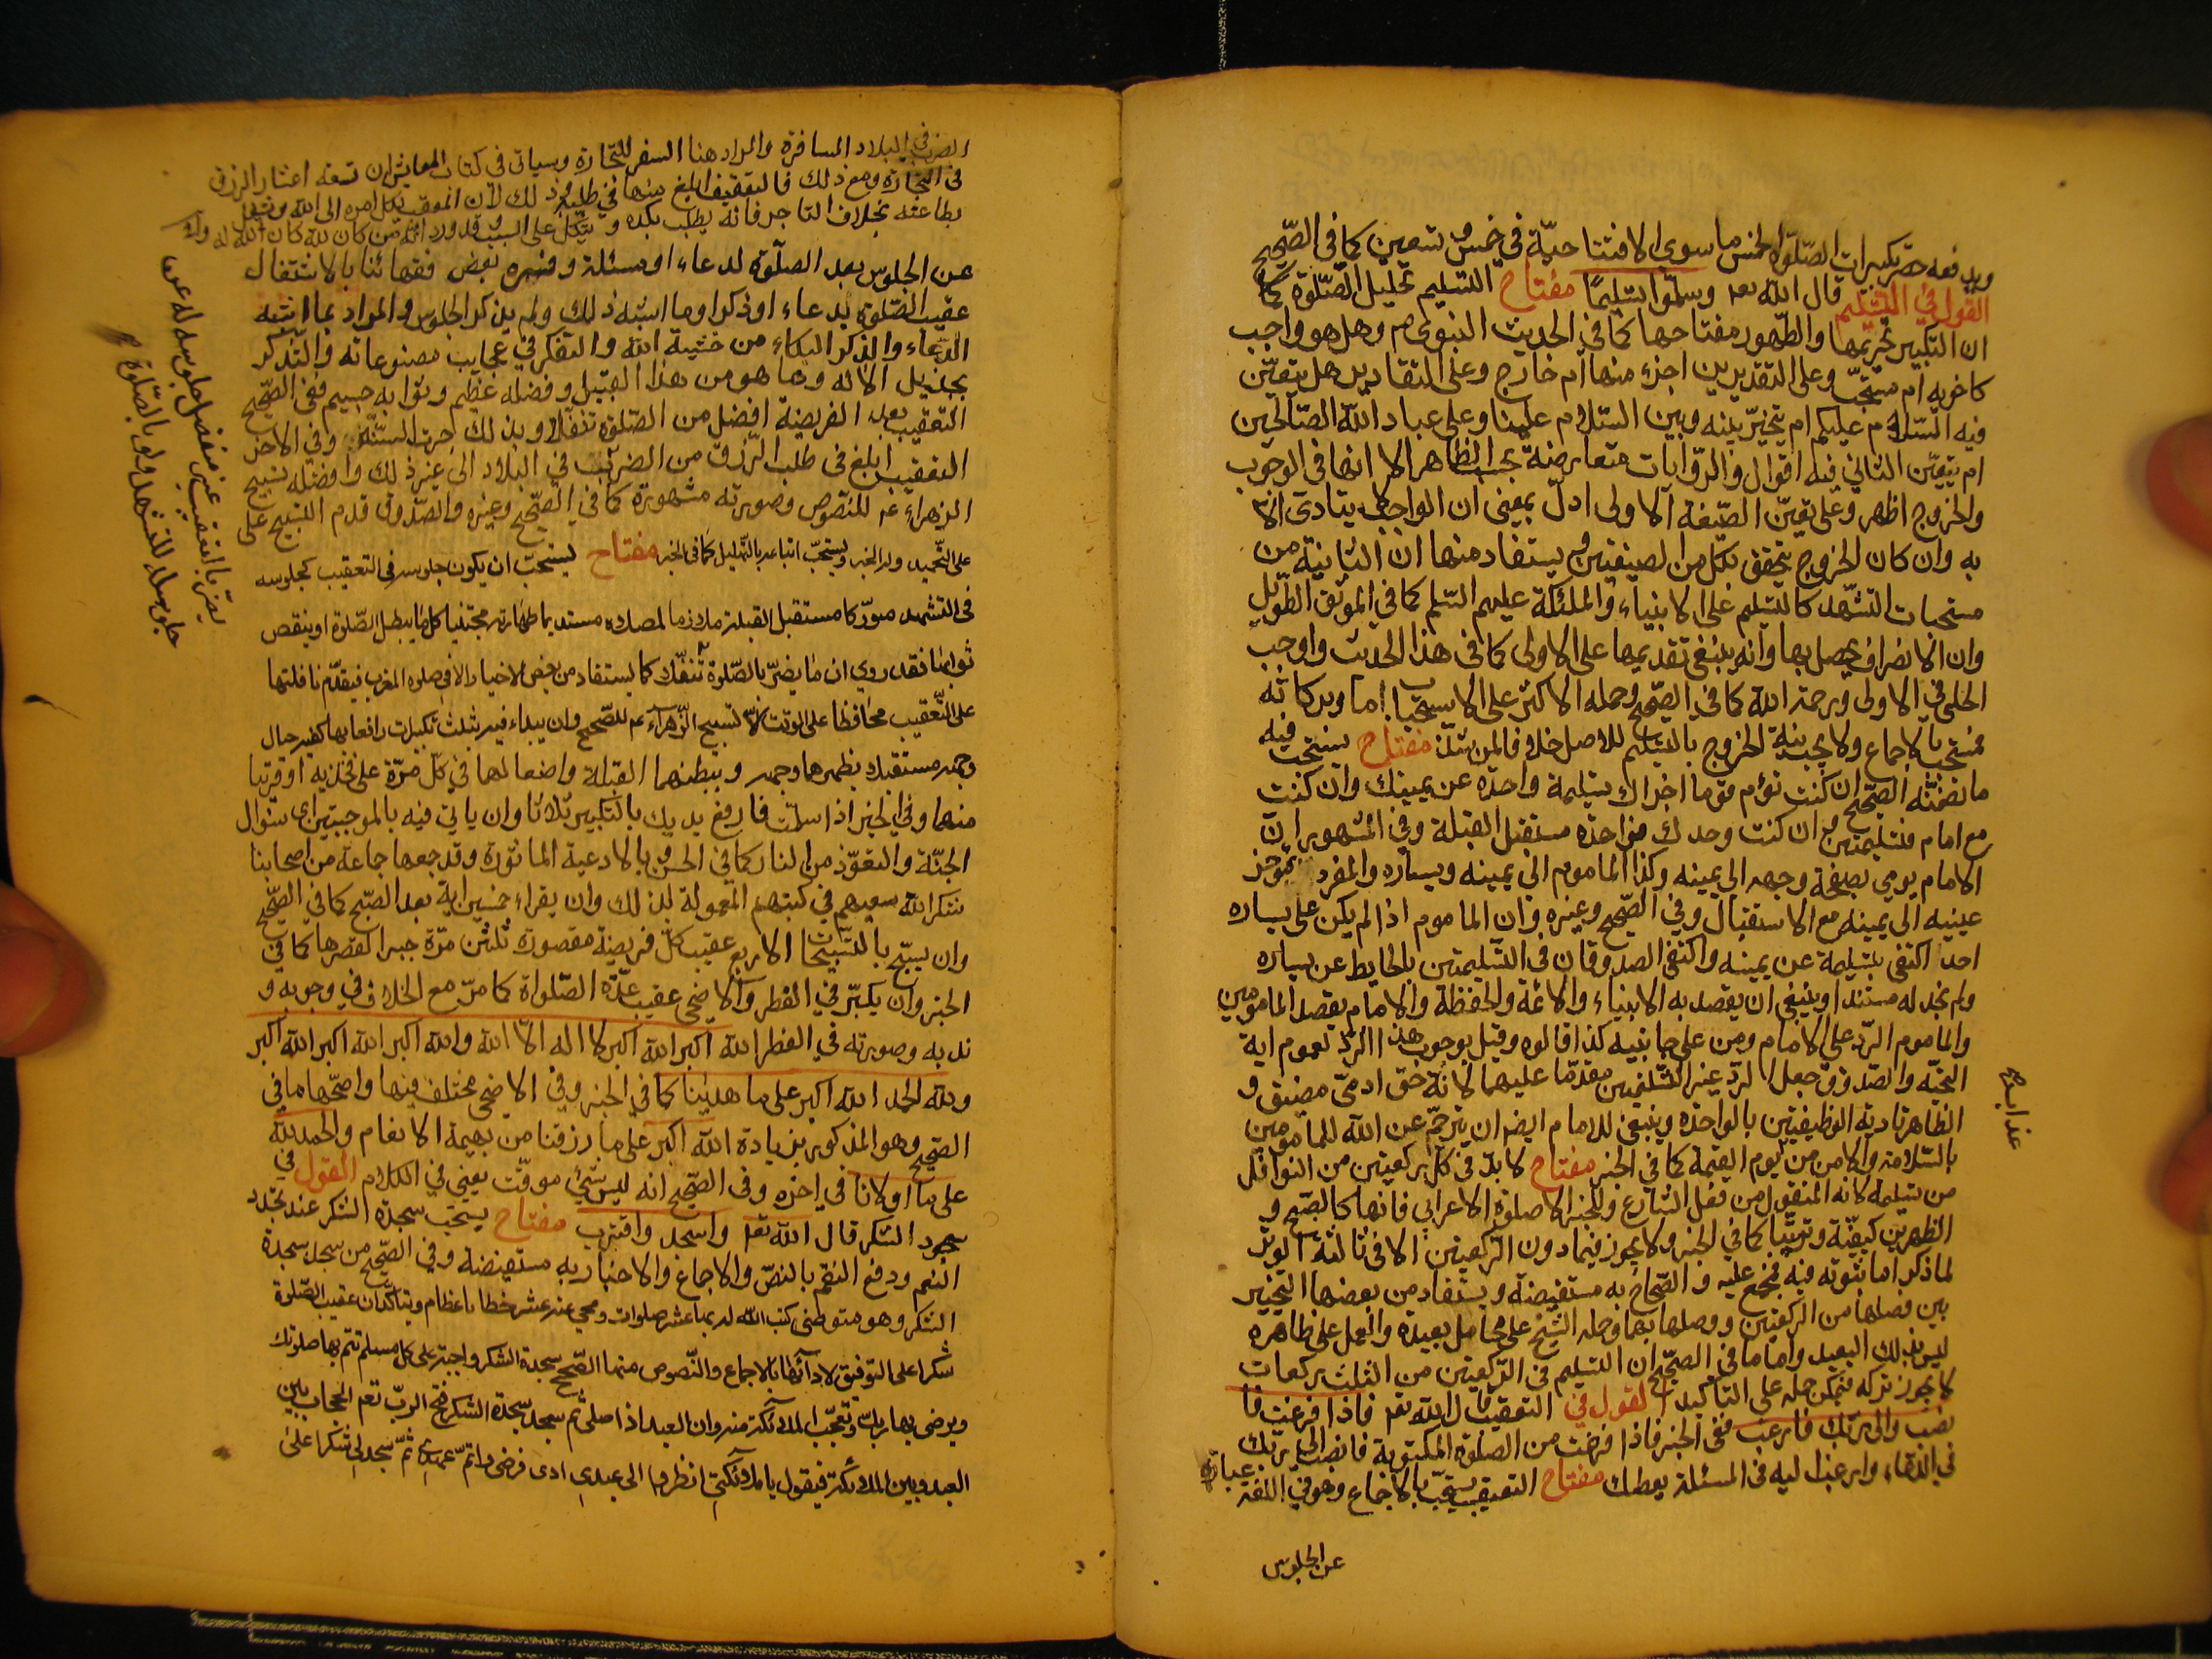 ويدفعه حصر تكبيرات الصلوة الخمس ما سوى الافتتاحية في خمس و تسعين كما في الصحيح
القول في التسليم قال الله تعه وسلموا تسليما مفتاح التسليم تحليل الصلوة كما
ان التكبير تحريمها والطهور مفتاحها كما في الحديث النبوي ص وهل هو واجب
كاخويه ام مستحب وعلى التقديرين اجزء منها ام خارج وعلى التقادير هل يتعين
فيه السلام عليكم ام يتخير بينه وبين السلام علينا وعلى عباد الله الصالحين
ام يتعين الثاني فيه اقوال والروايات متعارضة بحسب الظاهر الا انها في الوجوب
والخروج اظهر وعلى تعين الصيغة الاولى ادل بمعنى ان الواجب يتادى
به وان كان الخروج يتحقق بكل من الصيغتين و يستفاد منها ان الثانية من
مستحبات التشهد كالتسليم على الانبياء والملئكة عليهم السلم كما في الموثق الطويل
وان الانصراف يحصل بها وانه ينبغي تقديمها على الاولى كما في هذا الحديث واوجب
الحلي في الاولى ورحمة الله كما في الصحيح وحمله الاكثر على الاستحباب اما وبركاته
فمستحب بالاجماع ولا يجب نية الخروج بالتسليم للاصل خلافا لمن شذ مفتاح يستحب فيه
ما تضمنه الصحيح ان كنت تؤم قوما اجزاك تسليمة واحدة عن يمينك وان كنت
مع امام فتسليمتين و ان كنت وحدك فواحدة مستقبل القبلة وفي المشهور ان
الامام يومي بصفحة وجهه الى يمينه وكذا الماموم الى يمينه ويساره والمفرد بمؤخر
عينيه الى يمينه مع الاستقبال وفي الصحيح وغيره وان الماموم اذا لم يكن على يساره
احد اكتفى بتسليمة عن يمينه واكتفى الصدوقان في التسليمتين بالحايط عن يساره
ولم نجد له مستندا وينبغي ان يقصد به الانبياء والائمة والحفظة والامام يقصد المامومين
والماموم الرد على الامام ومن على جانبيه كذا قالوه وقيل بوجوب هذا الرد لعموم اية
التحية والصدوق جعل الرد غير التسلمين مقدما عليهما لانه حق ادمي مضيق و
الظاهر تادية الوظيفتين بالواحدة وينبغي للامام ايضه ان يترجم عن الله للمامومين
بالسلامة والامن من يوم القيمة كما في الخبر مفتاح لا بد في كل ركعتين من النوافل
من تسليمة لانه المنقول من فعل الشارع وللخبر الا صلوة الاعرابي فانها كالصبح و
الظهرين كيفية وترتيبا كما في الخبر ولا يجوز فيما دون الركعتين الا في ثالثة الوتر
لما ذكر اما ثبوته فيه فمجمع عليه و الصحاح به مستفيضة ويستفاد من بعضها التخيير
بين فصلها من الركعتين ووصلها بهما وحمله الشيخ على محامل بعيدة والعمل على ظاهره
ليس بذلك البعيد واما ما في الصحيح ان التسليم في الركعتين من الثلث ركعات
لا يجوز تركه فيمكن حمله على التاكيد القول في التعقيب قال الله تعه فاذا فرغت فا
نصب والى ربك فارغب ففي الخبر فاذا فرغت من الصلوة المكتوبة فانصب الى ربك
في الدعاء وارغب اليه في المسئلة يعطك مفتاح التعقيب يستحب بالاجماع وهو في اللغة عبارة
عن الجلوس
الضرب في البلاد المسافرة والمراد هنا السفر للتجارة وسياتي في كتاب المعايش ان تسعة اعشار الرزق
في التجارة ومع ذلك فالتعقيب ابلغ منها في طلبه و ذلك لان المعقب يكل امره الى الله ويشتغل
بطاعته بخلاف التاجر فانه يطلب بكده و يتكل على السبب وقد ورد انه من كان لله كان الله له
عن الجلوس بعد الصلوة لدعاء او مسئلة وفسره بعض فقهائنا بالاشتغال
عقيب الصلوة بدعاء او ذكر او ما اشبه ذلك ولم يذكر الجلوس والمراد بما اشبه
الدعاء والذكر البكاء من خشية الله والتفكر في عجايب مصنوعاته والتذكر
بجزيل الائه وما هو من هذا القبيل وفضله عظيم وثوابه جسيم ففي الصحيح
التعقيب بعد الفريضة افضل من الصلوة تنفلا وبذلك جرت السنة وفي الاخر
التعقيب ابلغ في طلب الرزق من الضرب في البلاد الى غير ذلك وافضله تسبيح
الزهراء ع للنصوص وصورته مشهورة كما في الصحيح وغيره والصدوق قدم التسبيح على
على التحميد وله الخبر ويستحب اتباعه بالتهليل كما في الخبر مفتاح يستحب ان يكون جلوسه في التعقيب كجلوسه
في التشهد متوركا مستقبل القبلة ملازما لمصلاه مستديما طهارته مجتنبا كل ما يبطل الصلوة او ينقص
ثوابها فقد روي ان ما يضر بالصلوة كما يستفاد من بعض الاخبار الا في صلوة المغرب فيقدم نافلتها
على التعقيب محافظا على الوقت الا تسبيح الزهراء ع للصحيح وان يبداء فيه بثلث تكبيرات رافعا بها كفيه حيال
وجهه مستقبلا بظهرهما وجهه وببطنهما القبلة واضعا لهما في كل مرة على فخذيه او قريبا
منهما وفي الخبر اذا سلمت فارفع يديك بالتكبير ثلاثا وان ياتي فيه بالموجبتين اي سؤال
الجنة والتعوذ من النار كما في الحسن و بالادعية الماثورة وقد جمعها جماعة من اصحابنا
شكر الله سعيهم في كتبهم المعمولة لذلك وان يقراء خمسين اية بعد الصبح كما في الصحيح
وان يسبح بالتسبيحات الاربع عقيب كل فريضة مقصورة ثلثين مرة جبرا لقصرها كما في
الخبر وان يكبر في الفطر والاضحى عقيب عدة الصلوات كما مر مع الخلاف في وجوبه و
ندبه وصورته في الفطر الله اكبر الله اكبر لا اله الا الله والله اكبر الله اكبر الله اكبر
ولله الحمد الله اكبر على ما هدينا كما في الخبر وفي الاضحى مختلف فيها واصحها ما في
الصحيح وهو المذكور بزيادة الله اكبر على ما رزقنا من بهيمة الانعام والحمد لله
على ما اولانا في اخره وفي الصحيح انه ليس شئ موقت يعني في الكلام القول في
سجود الشكر قال الله تعه واسجد واقترب مفتاح يستحب سجدة الشكر عند تجدد
النعم ودفع النقم بالنص والاجماع والاخبار به مستفيضة وفي الصحيح من سجد سجدة
الشكر وهو متوضئ كتب الله له بها عشر صلوات ومحي عنه عشر خطايا عظام ويتاكدان عقيب الصلوة
شكرا على التوفيق لادائها بالاجماع والنصوص منها الصحيح سجدة الشكر واجبة على كل مسلم تتم بها صلوتك
ويرضى بها ربك وتعجب الملائكة منه وان العبد اذا صلى ثم سجد سجدة الشكر فتح الرب تعه الحجاب بين
العبد وبين الملائكة فيقول يا ملائكتي انظروا الى عبدي ادى فرضي واتم عهدي ثم سجد لي شكرا على
يضر بالتعقيب غير مفصل جلوسه له عن
جلوسه للتشهد ولو بالصلوة